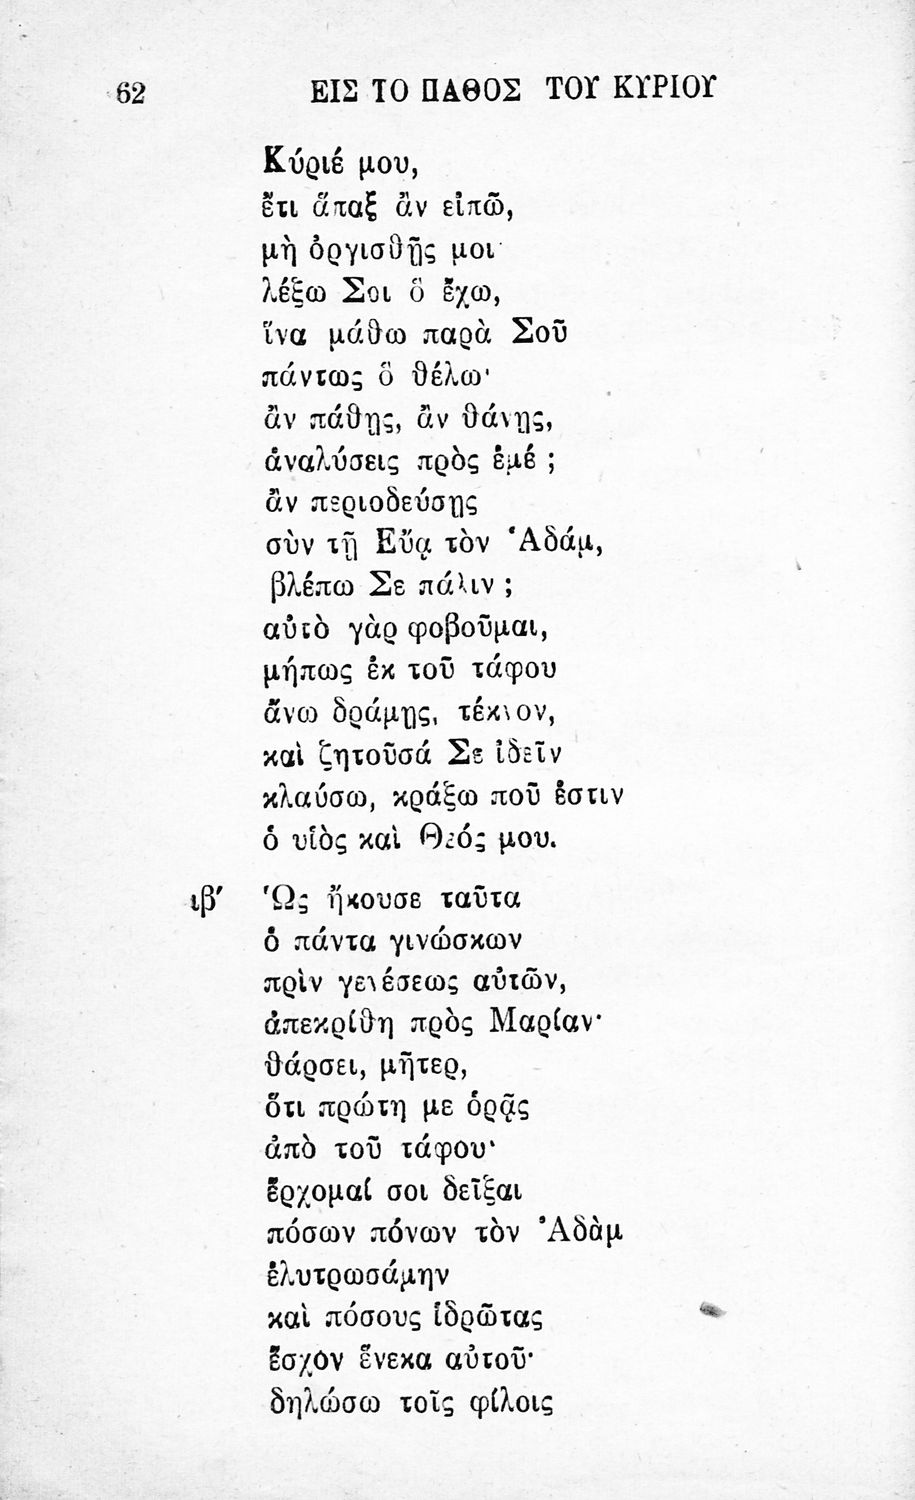 62 ΕΙΣ ΤΟ ΠΑΘΟΣ ΤΟΥ ΚΥΡΙΟΥ
Κύριέ μου,
ἔτι ἅπαξ ἂν εἰπῶ,
μὴ ὀργισθῇς μοι·
λέξω Σοι ὃ ἔχω,
ἵνα μάθω παρὰ Σοῦ
πάντως ὃ θέλω·
ἂν πάθῃς, ἂν θάνῃς,
ἀναλύσεις πρὸς ἐμέ ;
ἂν περιοδεύσῃς
σὺν τῇ Εὔᾳ τὸν Ἀδάμ,
βλέπω Σε πάλιν ;
αὐτὸ γὰρ φοβοῦμαι,
μήπως ἐκ τοῦ τάφου
ἄνω δράμῃς, τέκνον,
καὶ ζητοῦσά Σε ἰδεῖν
κλαύσω, κράξω ποῦ ἐστιν
ὁ υἱὸς καὶ Θεός μου.
ιβ′ Ὡς ἤκουσε ταῦτα
ὁ πάντα γινώσκων
πρὶν γενέσεως αὐτῶν,
ἀπεκρίθη πρὸς Μαρίαν·
θάρσει, μῆτερ,
ὅτι πρώτη με ὁρᾷς
ἀπὸ τοῦ τάφου·
ἔρχομαί σοι δεῖξαι
πόσων πόνων τὸν Ἀδὰμ
ἐλυτρωσάμην
καὶ πόσους ἱδρῶτας
ἔσχον ἕνεκα αὐτοῦ·
δηλώσω τοῖς φίλοις